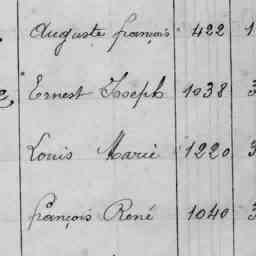 Auguste françois 422 1
e, Ernest Joseph 1038 3
Louis Marie 1220 3
françois René 1040 3